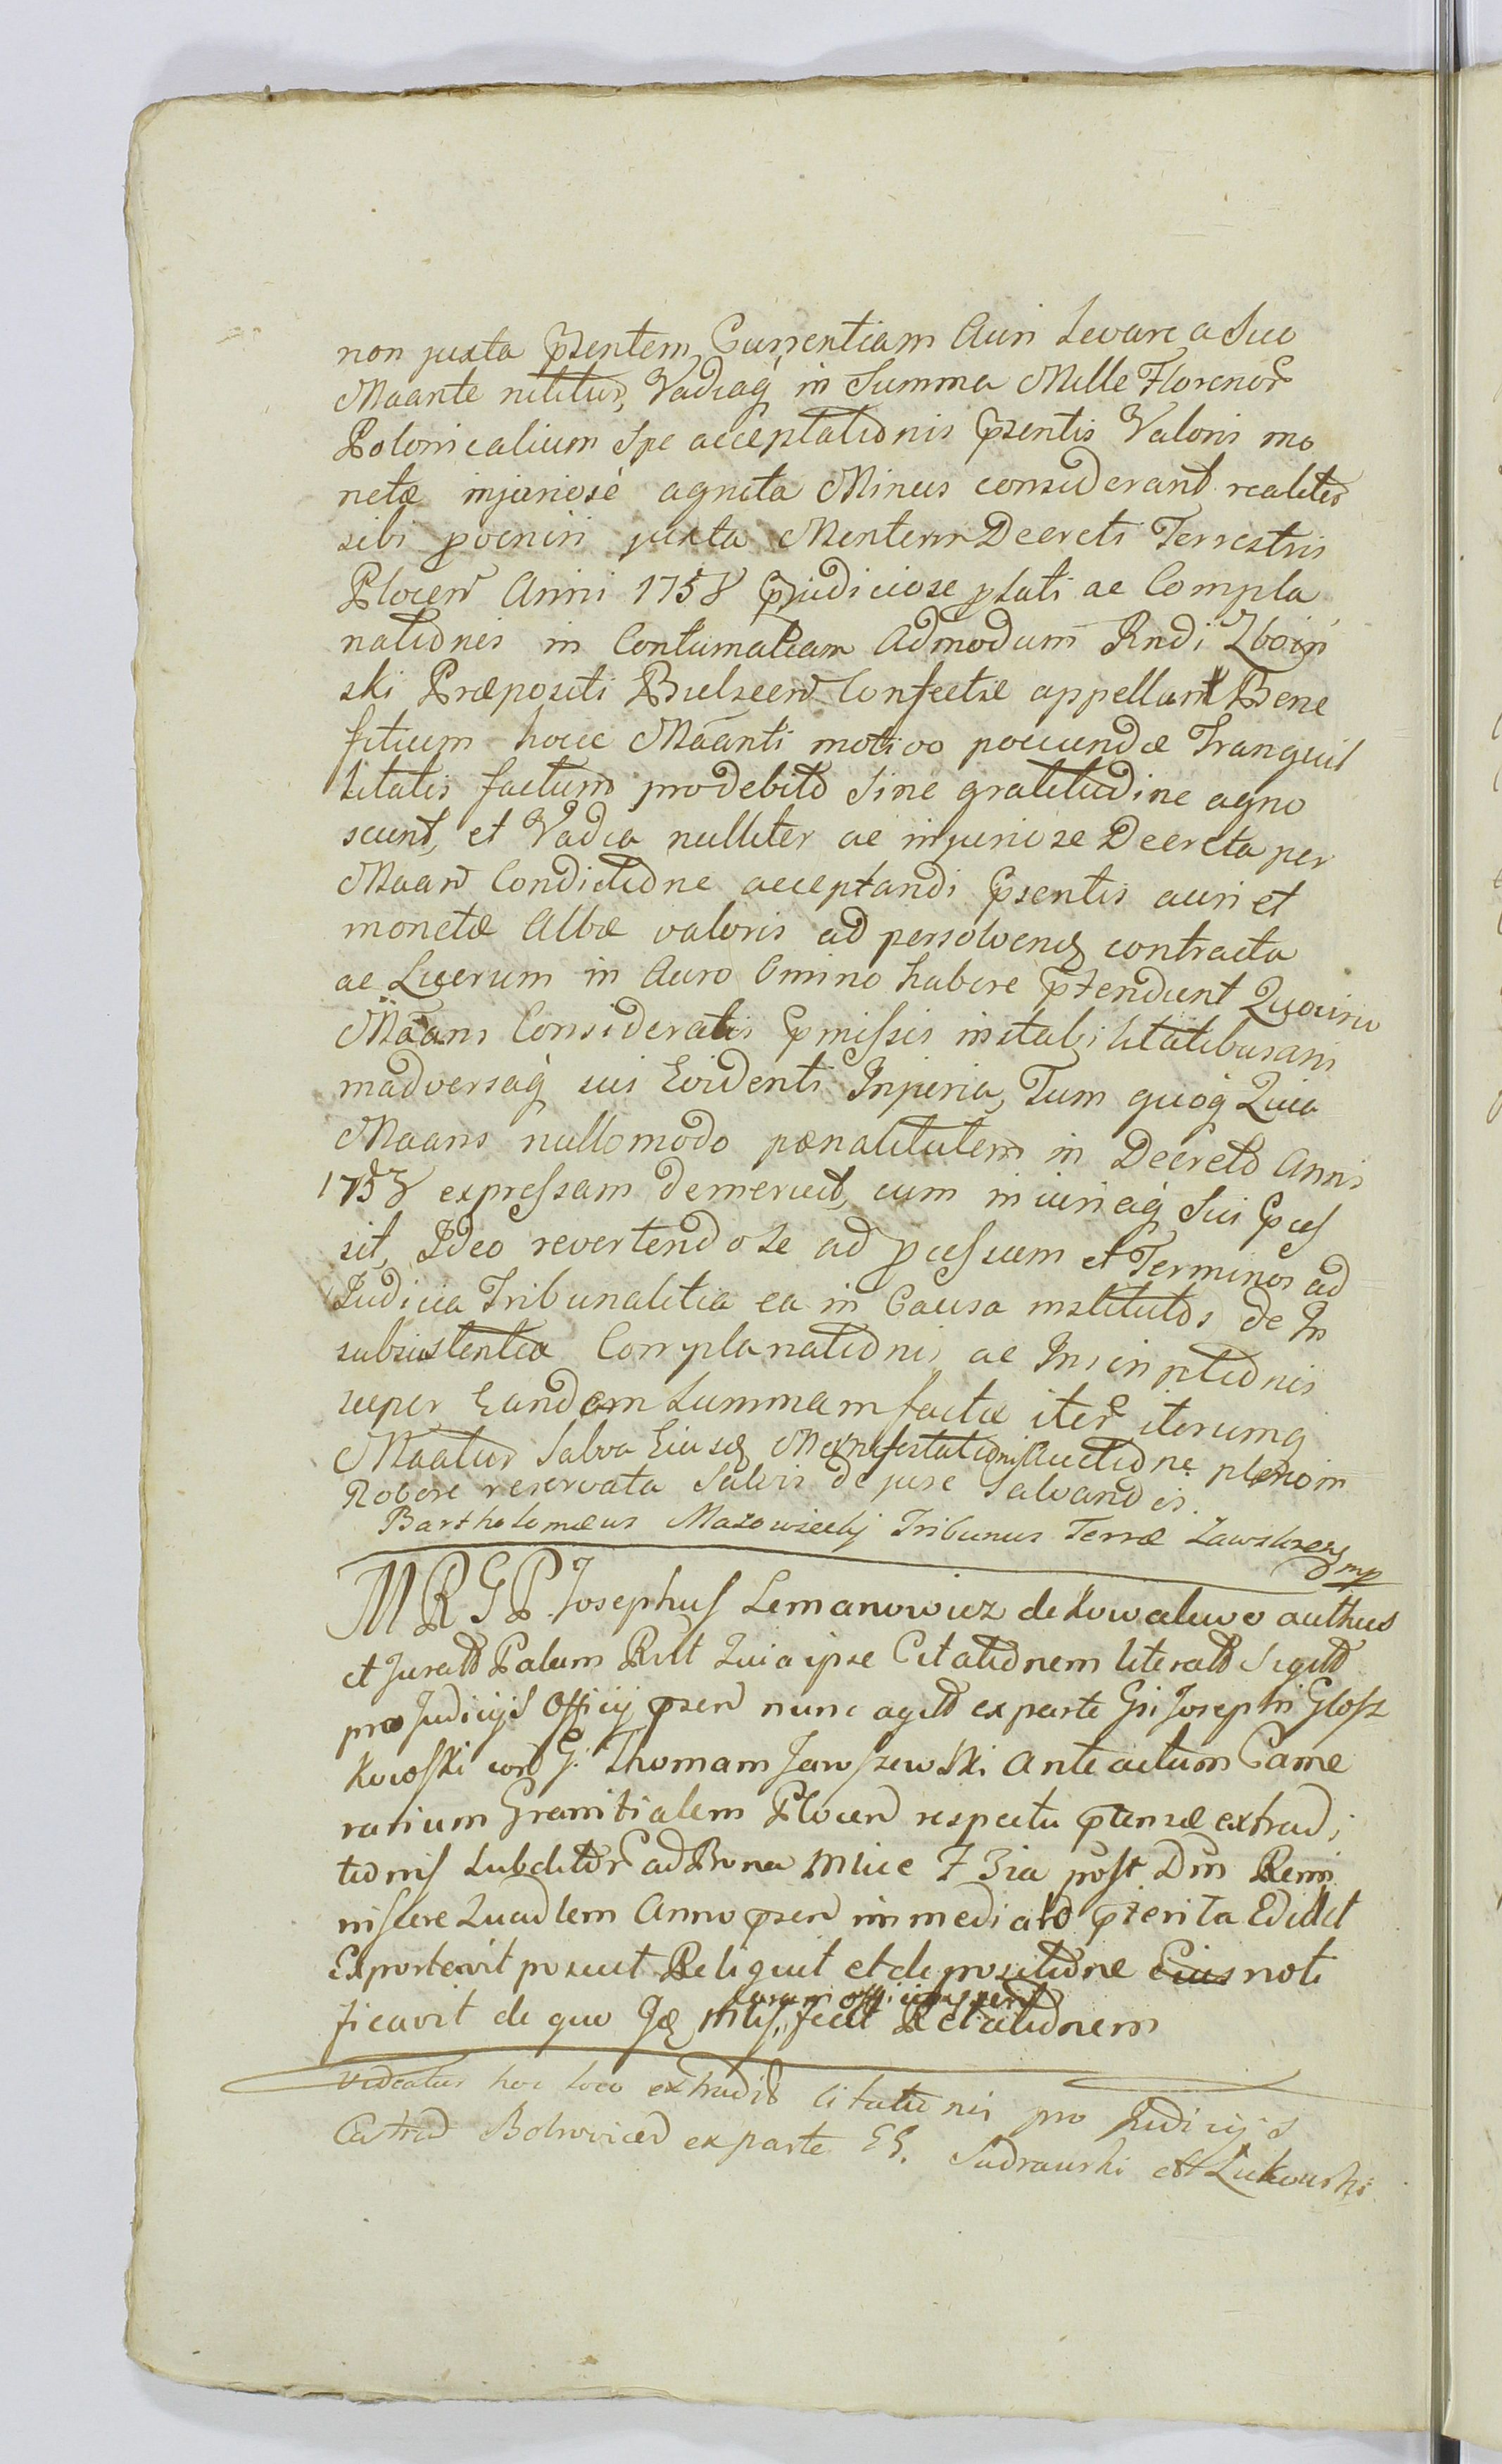 non juxta pzentem Currentiam Auri Levare a Suo
Maante nititur, Vadiaq in Summa Mille Florenor
Polonicalium Spe acceptationis pzentis Valoris mo
netæ injuriosè agnita Minus considerant realiter
sibi poeniri juxta Mentem Decreti Terrestris
Plocen Anni 1758 pjudiciose plati ac Compla
nationis in Contumatiam Admodum Rndi Zboin
ski Præpositi Bielscen Confectæ appellant Bene
fitium hocce Maanti motivo Tranquil
litatis factum pro debito Sine gratitudine agno
scunt, et Vadia nulliter ac injurioze Decreta per
Maan Condictione acceptandi pzentis auri et
monetæ Albæ valoris ad persolvend contracta
ac Lucrum in Auro Omino habere ptendunt
Maans Consideratis pmissis instabilitatibus ani
madversaq sui Evidenti Injuria, Tum quoq Quia
Maans nullomodo pænalitatem in Decreto Anni
1758 expressam demeruit, cum in
sit, Ideo revertendo se ad pcessum et Terminos ad
Judicia Tribunalitia ea in Causa institutos de In
subsistentia Complanationis ac Inscriptionis
super Eandem Summam factæ iter iterumq
Maatur Salva Eiusd Manifestationis Auctione plenoin
Robore reservata Salvis de jure Salvandis.
Bartholomæus Mazowiecki Tribunus Terræ Zawskrzen mp
MRGP. Josephus Lemanowicz de Kowalewo authus
et Jurato Palam Rlt Quia ipse Citationem literato Sigilo
pro Judicijs Officij pzen nunc agito ex parte Gsi Josephi Glosz
kowski con G. Thomam Jarszewski Anteactum Came
rarium Granitialem Plocen respectu ptensæ extradi
tionis Subditor ad Bona Mlice F 3ia post Dm Remi
niscere Quadlem Anno pzen immediato pterita Edidit
Exportavit posuit Reliquit et de positione Eius noti
ficavit de quo fecit coram officio pzen Relationem
Videatur hoc loco extradit Citationis pro Judicijs
Castren Bobrovicen ex parte GG. Sudrawski et Lukowski